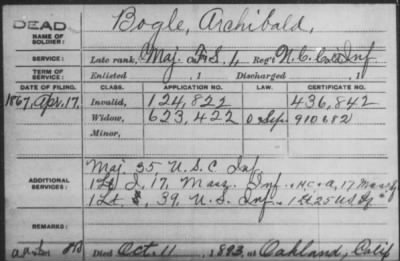 DEAD
NAME OF SOLDIER:
Bogle, Archibald,
SERVICE:
Late rank, Maj. F. S. 1, Reg't N. C. Cold Inf
TERM OF SERVICE:
Enlisted , 1 Discharged , 1
DATE OF FILING. CLASS. APPLICATION NO. LAW. CERTIFICATE NO.
1867, Apr. 17. Invalid, 124,822 436,842
Widow, 623,422 910682
Minor,
ADDITIONAL SERVICES:
Maj. 35 U. S. C. Inf.
1 Lt. I, 17, Mass. Inf. H, C & A, 17 Mass
1 Lt. 39, U. S. Inf. 1 Lt 25 US Inf
REMARKS:
Died Oct. 11, 1893, at Oakland, Calif